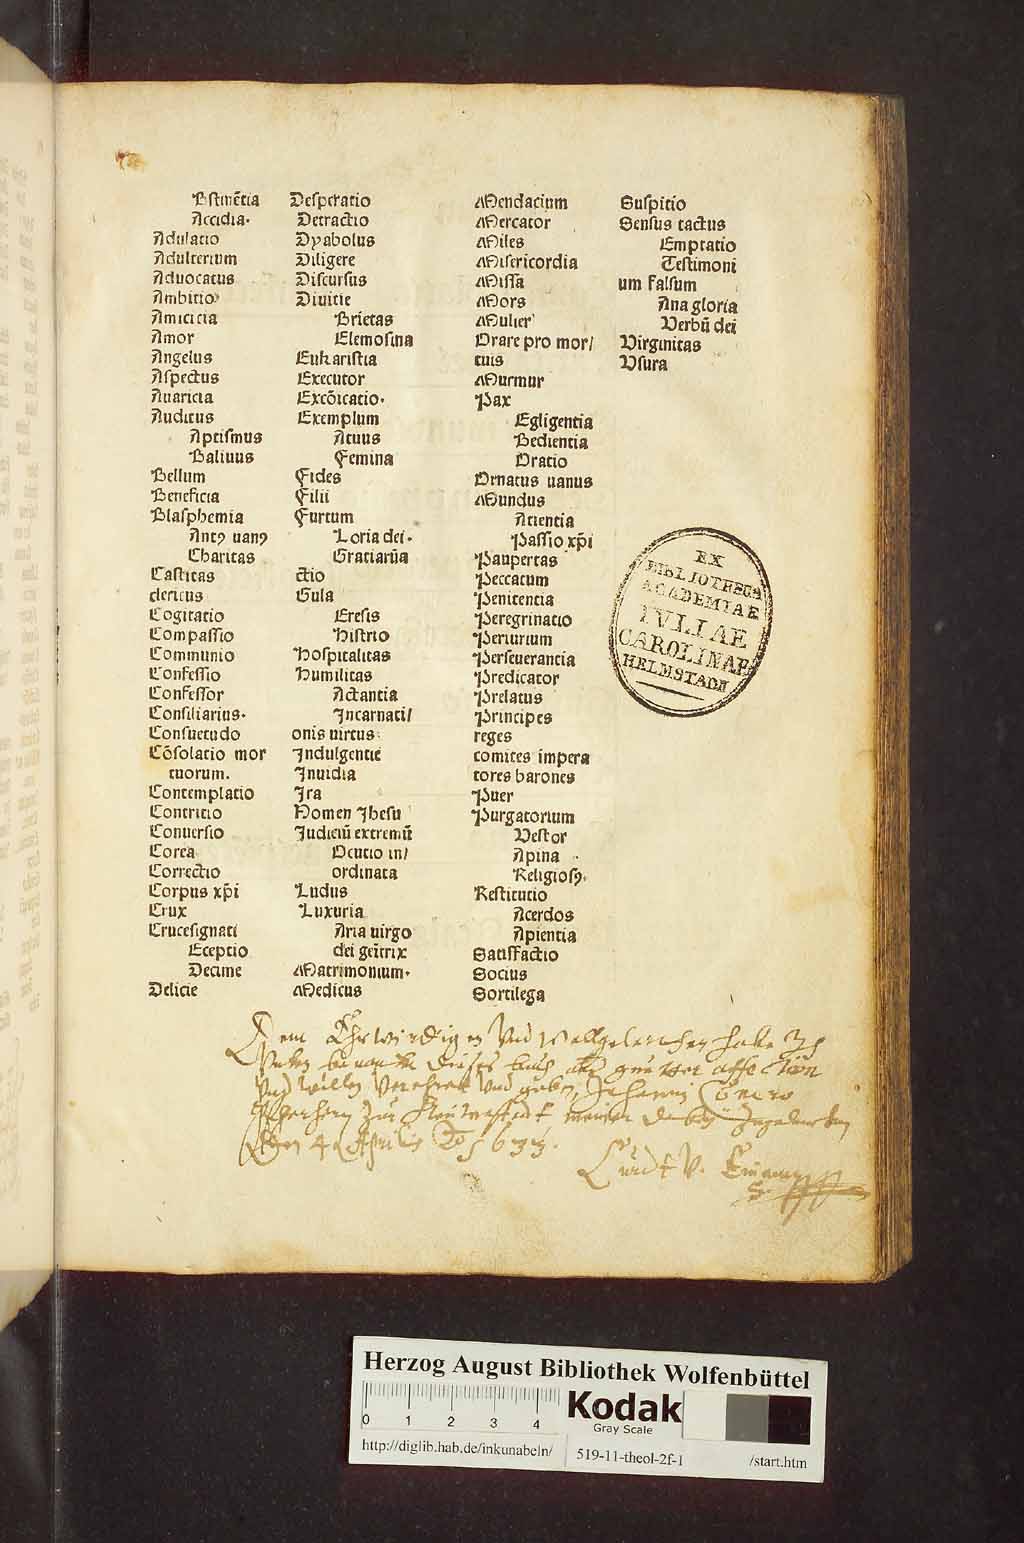 Bstinẽtia
Accidia.
Adulatio
Adulterium
Aduocatus
Ambitio
Amicicia
Amor
Angelus
Aspectus
Auaricia
Auditus
Aptismus
Baliuus
Bellum
Beneficia
Blasphemia
Antꝰ uanꝰ
Charitas
Castitas
clericus
Cogitatio
Compassio
Communio
Confessio
Confessor
Consiliarius.
Consuetudo
Cõsolatio mor
tuorum.
Contemplatio
Contritio
Conuersio
Corea
Correctio
Corpus xp̃i
Crux
Crucesignati
Eceptio
Decime
Delicie
Desperatio
Detractio
Dyabolus
Diligere
Discursus
Diuitie
Brietas
Elemosina
Eukaristia
Executor
Excõicatio.
Exemplum
Atuus
Femina
Fides
Filii
Furtum
Loria dei.
Gratiarũa
ctio
Gula
Eresis
Histrio
Hospitalitas
Humilitas
Actantia
Incarnati/
onis uirtus
Indulgentie
Inuidia
Ira
Nomen Ihesu
Judiciũ extremũ
Ocutio in/
ordinata
Ludus
Luxuria
Aria uirgo
dei geñtrix
Matrimonium.
Medicus
Mendacium
Mercator
Miles
Misericordia
Missa
Mors
Mulier
Orare pro mor/
tuis
Murmur
Pax
Egligentia
Bedientia
Oratio
Ornatus uanus
Mundus
Atientia
Passio xp̃i
Paupertas
Peccatum
Penitentia
Peregrinatio
Periurium
Perseuerantia
Predicator
Prelatus
Principes
reges
comites impera
tores barones
Puer
Purgatorium
Vestor
Apina
Religiosꝰ.
Restitutio
Acerdos
Apientia
Satisfactio
Socius
Sortilega
Suspitio
Sensus tactus
Emptatio
Testimoni
um falsum
Ana gloria
Verbũ dei
Virginitas
Vsura
EX
BIBLIOTHECA
ACADEMIAE
IVLIAE
CAROLINAE
HELMSTADII
Dem Ehrwirdigen Vnd Wollgelerten habe Ich
dieses buch guetter affection
Vnd willen Verehret Vnd geben, Johanni
Zur
Den 4 Aprilis 1633.
Curdt V.
Herzog August Bibliothek Wolfenbüttel
0 1 2 3 4
Kodak
Gray Scale
http://diglib.hab.de/inkunabeln/
519-11-theol-2f-1
/start.htm